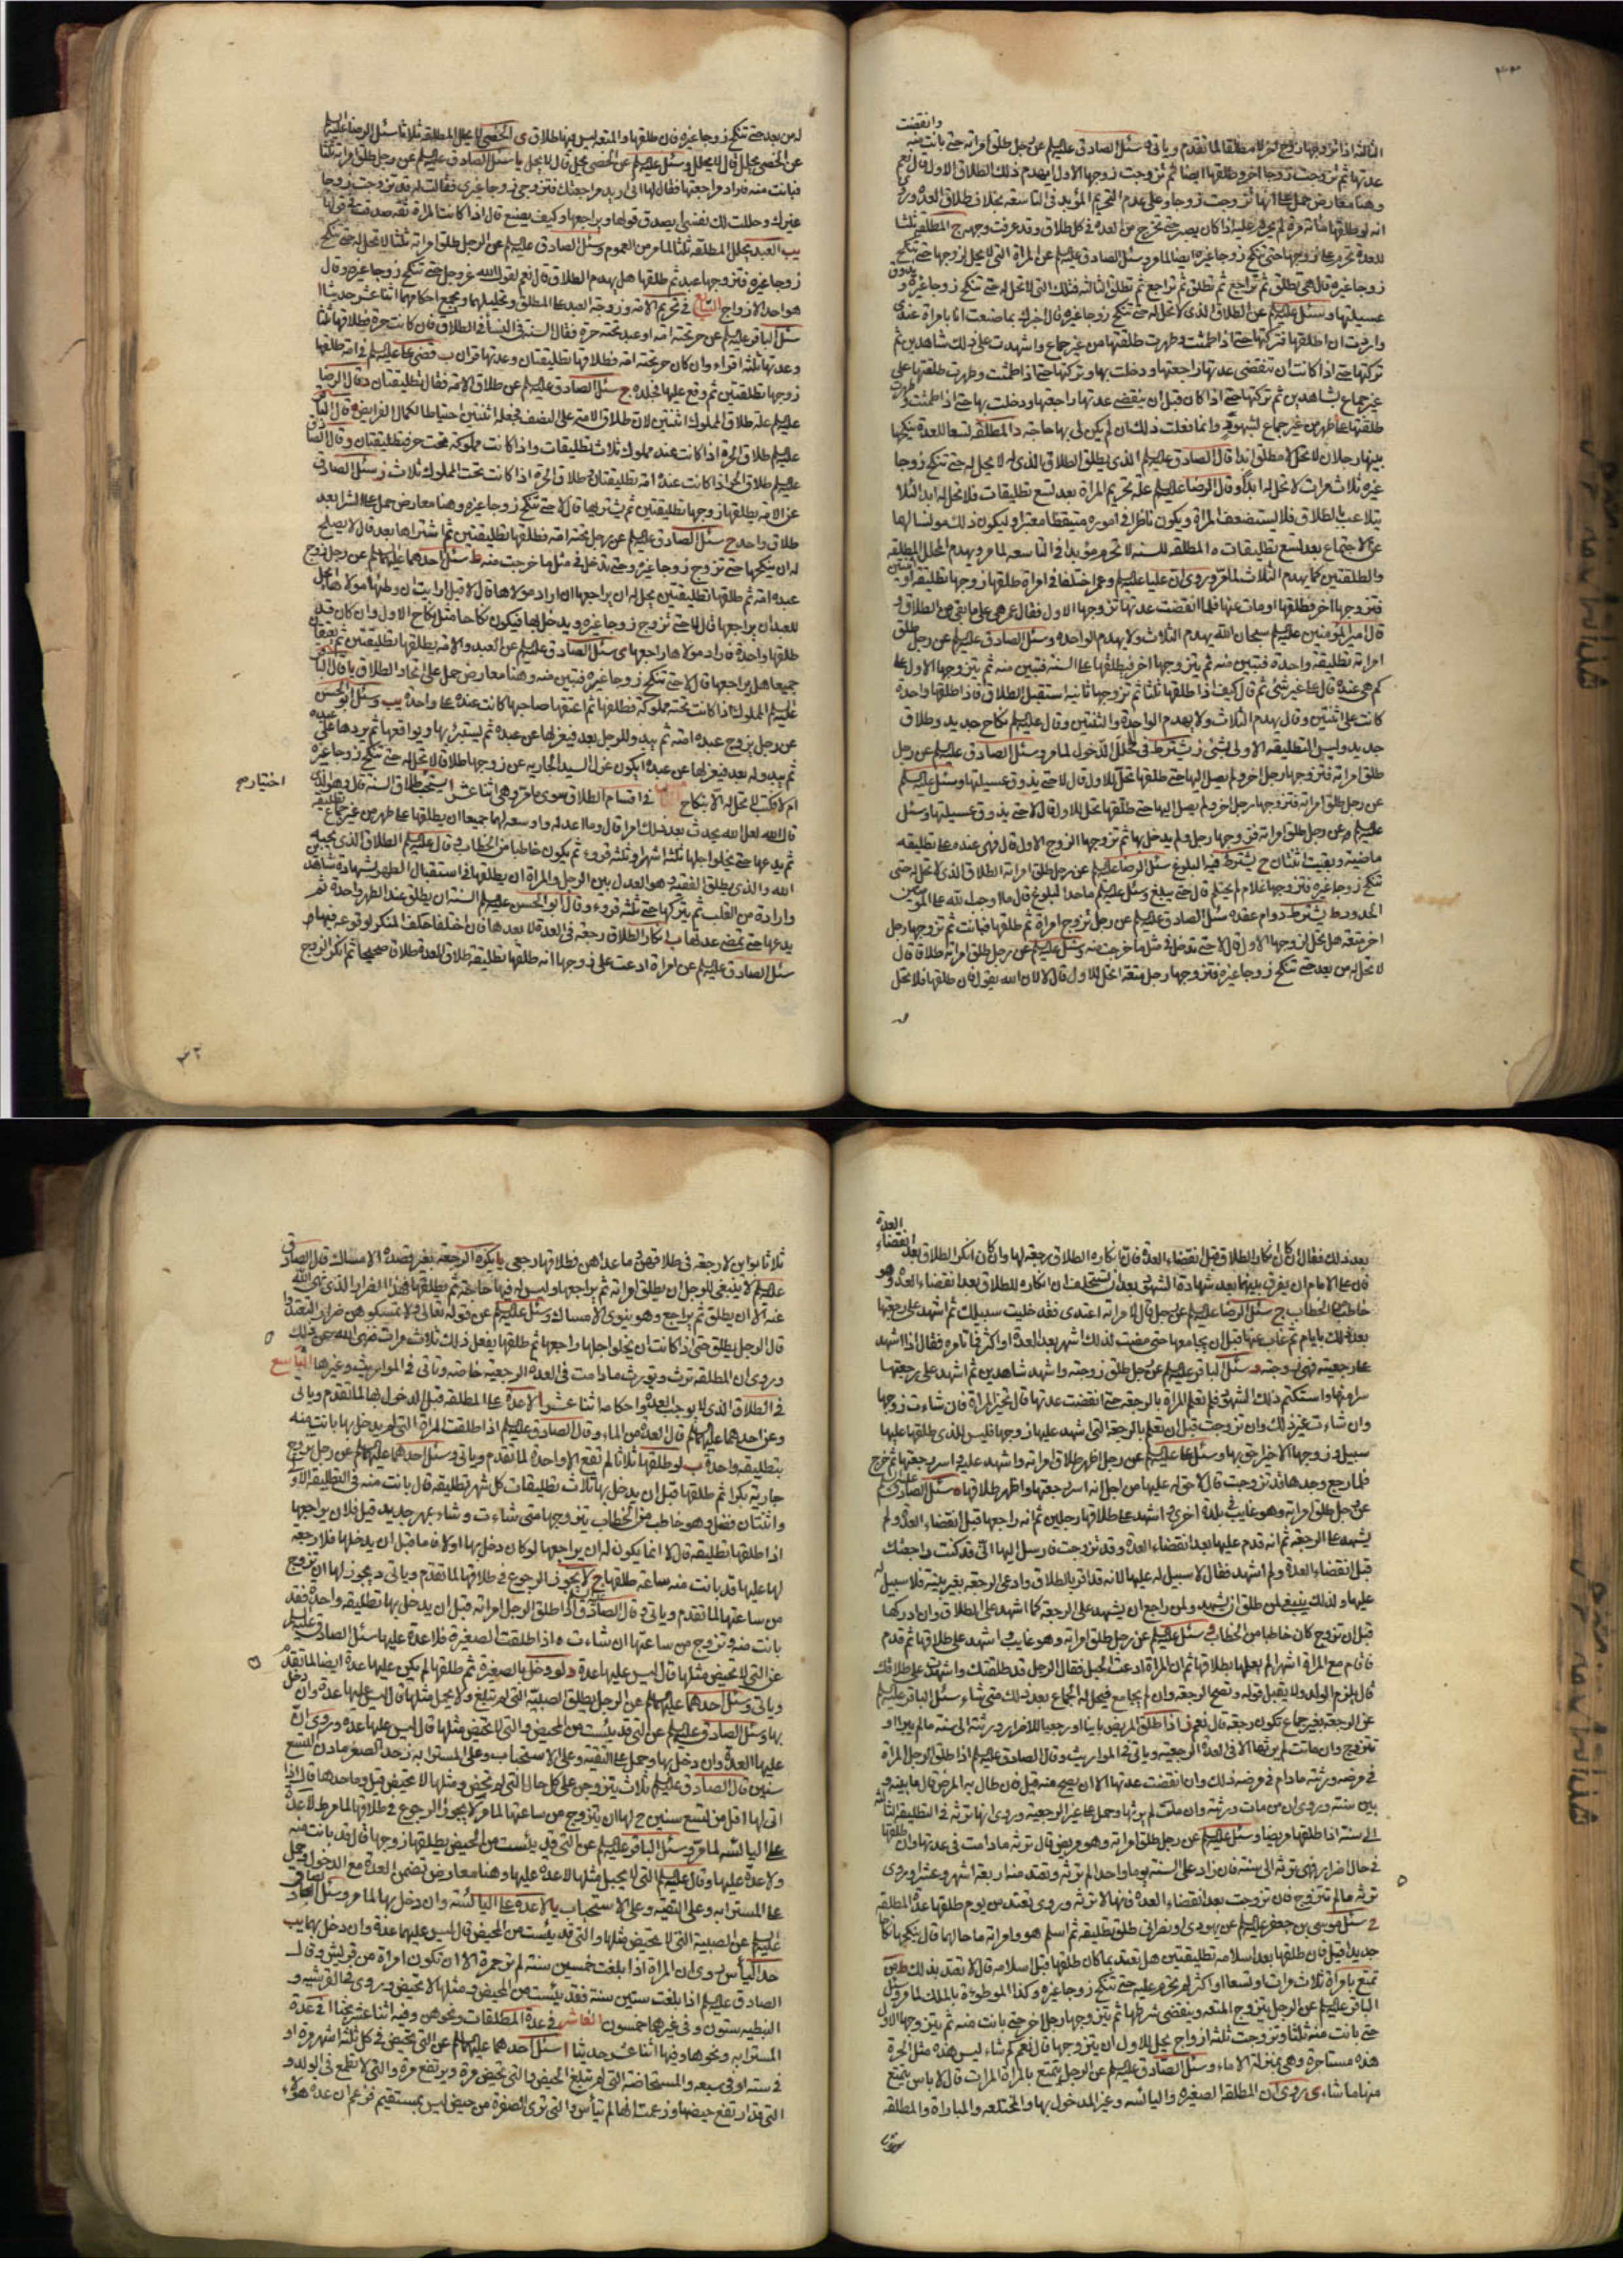 وانقضت
عدتها ثم تزوجت زوجا اخر وطلقها ايضا ثم تزوجت زوجها الاول ايهدم ذلك الطلاق الاول قال نعم
للعدة تحرم على زوجها حتى تنكح زوجا غيره ايضا لما مر وسئل الصادق عليه السلم عن المراة التي لا يحل لزوجها حتى تنكح
زوجا غيره قال هي تطلق ثم تراجع ثم تطلق ثم تراجع ثم تطلق الثالثة فتلك التي لا تحل له حتى تنكح زوجا غيره و
عسيلتها وسئل عليه السلم عن الطلاق الذي لا تحل له حتى تنكح زوجا غيره قال اخبرك بما صنعت انا بامراة عندي
واردت ان اطلقها فتركتها حتى اذا طمثت وطهرت طلقتها من غير جماع واشهدت على ذلك شاهدين ثم
تركتها حتى اذا كانت ان تنقضي عدتها راجعتها ودخلت بها وتركتها حتى اذا طمثت وطهرت طلقتها على
غير جماع بشاهدين ثم تركتها حتى اذا كان قبل ان ينقضي عدتها راجعتها ودخلت بها حتى اذا طمثت وطهرت
طلقتها على طهر من غير جماع بشهود وانما فعلت ذلك ان لم يكن لي بها حاجة د المطلقة تسعا للعدة ينكحها
بينها رجلان لا تحل لا مطلق ابدا قال الصادق عليه السلم الذي يطلق الطلاق الذي لا يحل له حتى تنكح زوجا
غيره ثلاث مرات لا تحل له ابدا وقال الرضا عليه السلم علة تحريم المراة بعد تسع تطليقات فلا تحل له ابدا لئلا
يتلاعب بالطلاق فلا يستضعف المراة ويكون ناظرا في اموره متيقظا معتبرا وليكون ذلك مويسا لهما
عن الاجتماع بعد تسع تطليقات ه المطلقة للسنة لا تحرم مؤبدا في التاسعة لما مر ويهدم المحلل المطلقة
والطلقتين كما يهدم الثلاث لما مر وروي ان عليا عليه السلم وعمر اختلفا في امراة طلقها زوجها تطليقة او اثنتين
فتزوجها اخر فطلقها او مات عنها فلما انقضت عدتها تزوجها الاول فقال عمر هي على ما بقي من الطلاق و
قال امير المؤمنين عليه السلم سبحان الله يهدم الثلاث ولا يهدم الواحدة وسئل الصادق عليه السلم عن رجل طلق
امراته تطليقة واحدة فتبين منه ثم يتزوجها اخر فيطلقها على السنة فتبين منه ثم يتزوجها الاول على
كم هي عنده قال على غير شئ ثم قال كيف اذا طلقها ثلثا ثم تزوجها ثانية استقبل الطلاق فاذا طلقها واحدة
كانت على اثنتين وقال يهدم الثلاث ولا يهدم الواحدة والثنتين وقال عليه السلم نكاح جديد وطلاق
جديد وليس التطليقة الاولى بشئ ز يشترط في المحلل الدخول لما مر وسئل الصادق عليه السلم عن رجل
طلق امراته فتزوجها رجل اخر ولم يصل اليها حتى طلقها تحل للاول قال لا حتى يذوق عسيلتها وسئل عليه السلم
عن رجل طلق امراته فتزوجها رجل اخر ولم يصل اليها حتى طلقها تحل للاول قال لا حتى يذوق عسيلتها وسئل
عليه السلم عن رجل طلق امراته فتزوجها رجل ولم يدخل بها ثم تزوجها الزوج الاول قال فهي عنده على تطليقة
ماضية وبقيت اثنتان ح يشترط فيه البلوغ سئل الرضا عليه السلم عن رجل طلق امراته الطلاق الذي لا تحل له حتى
تنكح زوجا غيره فتزوجها غلام لم يحتلم قال حتى يبلغ وسئل عليه السلم ما حد البلوغ قال ما اوجب الله على المؤمنين
الحدود ط يشترط دوام عقده سئل الصادق عليه السلم عن رجل تزوج امراة ثم طلقها فبانت ثم تزوجها رجل
اخر متعة هل يحل لزوجها الاول قال لا حتى تدخل في مثل ما خرجت منه وسئل عليه السلم عن رجل طلق امراته طلاقا
لا تحل له من بعد حتى تنكح زوجا غيره فتزوجها رجل متعة اتحل للاول قال لا لان الله يقول فان طلقها فلا تحل
له من بعد حتى تنكح زوجا غيره فان طلقها والمتعة ليس فيها طلاق ي الخصي لا يحل المطلقة ثلاثا سئل الرضا عليه السلم
عن الخصي يحلل قال لا يحلل وسئل عليه السلم عن الخصي يحل قال لا يحل يا سئل الصادق عليه السلم عن رجل طلق امراته ثلثا
فبانت منه فاراد مراجعتها فقال لها اني اريد مراجعتك فتزوجي زوجا غيري فقالت له قد تزوجت زوجا
غيرك وحللت لك نفسي ايصدق قولها ويراجعها وكيف يصنع قال اذا كانت المراة ثقة صدقت في قولها
يب العبد يحلل المطلقة ثلثا لما مر من العموم وسئل الصادق عليه السلم عن الرجل طلق امراته ثلثا لا تحل له حتى تنكح
زوجا غيره فتزوجها عبد ثم طلقها هل يهدم الطلاق قال نعم لقول الله عز وجل حتى تنكح زوجا غيره وقال
هو احد الازواج السابع في تحريم الامة وزوجة العبد على المطلق وتحليلهما وجميع احكامهما اثنا عشر حديثا ا
سئل الباقر عليه السلم عن حر تحته امة او عبد تحته حرة فقال السنة في النساء في الطلاق فان كانت حرة فطلاقها ثلثا
وعدتها ثلثة اقراء وان كان حر تحته امة فطلاقها تطليقتان وعدتها قران ب قضى علي عليه السلم في امة طلقها
زوجها تطليقتين ثم وقع عليها فجلده ج سئل الصادق عليه السلم عن طلاق الامة فقال تطليقتان د قال الرضا
عليه السلم علة طلاق المملوك اثنتين لان طلاق الامة على النصف فجعله اثنتين احتياطا لكمال الفرائض ه قال الباقر
عليه السلم طلاق الحرة اذا كانت عند مملوك ثلاث تطليقات واذا كانت مملوكة تحت حر فتطليقتان وقال الصادق
عليه السلم طلاق الحر اذا كانت عنده امة تطليقتان وطلاق الحرة اذا كانت تحت المملوك ثلاث ز سئل الصادق
عن الامة يطلقها زوجها تطليقتين ثم يشتريها قال لا حتى تنكح زوجا غيره وهنا معارض حمل على الشرا بعد
طلاق واحد ح سئل الصادق عليه السلم عن رجل تحته امة فطلقها تطليقتين ثم اشتراها بعد قال لا يصلح
له ان ينكحها حتى تزوج زوجا غيره وحتى تدخل في مثل ما خرجت منه ط سئل احدهما عليهما السلم عن رجل زوج
عبده امته ثم طلقها تطليقتين يحل له ان يراجعها ان اراد مولاها قال لا قيل ارايت ان وطئها مولاها ايحل
للعبد ان يراجعها قال لا حتى تزوج زوجا غيره ويدخل بها فيكون نكاحا مثل نكاح الاول وان كان قد
طلقها واحدة فاراد مولاها راجعها ي سئل الصادق عليه السلم عن العبد والامة يطلقها تطليقتين ثم يعتقان
جميعا هل يراجعها قال لا حتى تنكح زوجا غيره فتبين منه وهنا معارض حمل على اتحاد الطلاق يا قال الباقر
عليه السلم المملوك اذا كانت تحته مملوكة فطلقها ثم اعتقها صاحبها كانت عنده على واحدة يب وسئل ابو الحسن
عن رجل يزوج عبده امته ثم يبدو للرجل بعد فيعزلها عن عبده ثم يستبرئها ويواقعها ثم يردها على عبده
ثم يبدو له بعد فيعزلها عن عبده ايكون عزل السيد الجارية عن زوجها طلاقا لا تحل له حتى تنكح زوجا غيره
ام لا فكتب لا تحل له الا بنكاح في اقسام الطلاق سوى ما مر وهي اثنا عشر ا يستحب طلاق السنة
اختيار صح
قال الله لعل الله يحدث بعد ذلك امرا
ثم يدعها حتى يخلو اجلها ثلثة اشهر او ثلثة قروء ثم يكون خاطبا من الخطاب وقال عليه السلم الطلاق الذي يحبه
الله والذي يطلق الفقيه وهو العدل بين الرجل والمراة ان يطلقها في استقبال الطهر بشهادة شاهد
وارادة من القلب ثم يتركها حتى تمضي ثلثة قروء وقال ابو الحسن عليه السلم السنة ان يطلق عند الطهر واحدة ثم
يدعها حتى تمضي عدتها ب انكار الطلاق رجعة في العدة لا بعدها فان اختلفا حلف المنكر
سئل الصادق عليه السلم عن امراة ادعت على زوجها انه طلقها تطليقة طلاق العدة طلاقا صحيحا ثم انكر الزوج
بعد ذلك فقال ان كان انكار الطلاق قبل انقضاء العدة فان انكاره الطلاق رجعة لها وان كان انكر الطلاق بعد انقضاء العدة
فان على الامام ان يفرق بينهما بعد شهادة الشهود بعد ان تستحلف ان انكاره للطلاق بعد انقضاء العدة وهو
خاطب من الخطاب ج سئل الرضا عليه السلم عن رجل قال لامراته اعتدي فقد خليت سبيلك ثم اشهد على رجعتها
بعد ذلك بايام ثم غاب عنها قبل ان يجامعها حتى مضت لذلك اشهر بعد العدة او اكثر فما تامره فقال اذا اشهد
على رجعته فهي زوجته د سئل الباقر عليه السلم عن رجل طلق زوجته واشهد شاهدين ثم اشهد على رجعتها
سرا منها واستكتم ذلك الشهود فلم تعلم المراة بالرجعة حتى انقضت عدتها قال تخير المراة فان شاءت زوجها
وان شاءت غير ذلك وان تزوجت قبل ان تعلم بالرجعة التي اشهد عليها زوجها فليس للذي طلقها عليها
سبيل وزوجها الاخير احق بها وسئل علي عليه السلم عن رجل اظهر طلاق امراته واشهد عليه واسر رجعتها ثم خرج
فلما رجع وجدها قد تزوجت قال لا حق له عليها من اجل انه اسر رجعتها واظهر طلاقها ه سئل الصادق عليه السلم
عن رجل طلق امراته وهو غايب في بلدة اخرى واشهد على طلاقها رجلين ثم انه راجعها قبل انقضاء العدة ولم
يشهد على الرجعة ثم انه قدم عليها بعد انقضاء العدة وقد تزوجت فارسل اليها اني قد كنت راجعتك
قبل انقضاء العدة ولم اشهد فقال لا سبيل له عليها لانه قد اقر بالطلاق وادعى الرجعة بغير بينة فلا سبيل له
عليها ولذلك ينبغي لمن طلق ان يشهد ولمن راجع ان يشهد على الرجعة كما اشهد على الطلاق وان ادركها
قبل ان تزوج كان خاطبا من الخطاب و سئل عليه السلم عن رجل طلق امراته وهو غايب واشهد على طلاقها ثم قدم
فاقام مع المراة اشهرا لم يعلمها بطلاقها ثم ان المراة ادعت الحبل فقال الرجل قد طلقتك واشهدت على طلاقك
قال يلزم الولد ولا يقبل قوله وتصح الرجعة وان لم يجامع فيحل له الجماع بعد ذلك متى شاء سئل الباقر عليه السلم
عن الرجعة بغير جماع تكون رجعة قال نعم ز اذا طلق المريض باينا او رجعيا للاضرار ورثته الى سنة ما لم يبرا او
تتزوج وان ماتت لم يرثها الا في العدة الرجعية وياتي في المواريث وقال الصادق عليه السلم اذا طلق الرجل المراة
في مرضه ورثته ما دام في مرضه ذلك وان انقضت عدتها الا ان يصح منه قيل فان طال به المرض قال ما بينه و
بين سنة وروي ان من مات ورثته وان ماتت لم يرثها وحمل على غير الرجعية وروي انها ترثه في التطليقة الثالثة
الى سنة اذا طلقها مريضا وسئل عليه السلم عن رجل طلق امراته وهو مريض قال ترثه ما دامت في عدتها وان طلقها
في حال اضرار فهي ترثه الى سنة فان زاد على السنة يوما واحدا لم ترثه وتعتد منه اربعة اشهر وعشرا وروي
ترثه ما لم تتزوج فان تزوجت بعد انقضاء العدة فانها لا ترثه وروي تعتد من يوم طلقها عدة المطلقة
ح سئل موسى بن جعفر عليه السلم عن يهودي او نصراني طلق تطليقة ثم اسلم هو وامراته ما حالهما قال ينكحها نكاحا
جديدا قيل فان طلقها بعد اسلامه تطليقتين هل تعتد بما كان طلقها قبل اسلامه قال لا تعتد بذلك ط من
تمتع بامراة ثلاث مرات او تسعا او اكثر لم تحرم عليه حتى تنكح زوجا غيره وكذا الموطوءة بالملك لما مر وسئل
الباقر عليه السلم عن الرجل يتزوج المتعة وينقضي شرطها ثم يتزوجها رجل اخر حتى بانت منه ثم يتزوجها الاول
حتى بانت منه ثلثا وتزوجت ثلثة ازواج يحل للاول ان يتزوجها قال نعم كم شاء ليس هذه مثل الحرة
هذه مستاجرة وهي بمنزلة الاماء وسئل الصادق عليه السلم عن الرجل يتمتع بالمراة المرات قال لا باس يتمتع
منها ما شاء ي روي ان المطلقة الصغيرة واليائسة وغير المدخول بها والمختلعة والمباراة والمطلقة
ثلاثا بواين لا رجعة في طلاقهن وما عداهن فطلاقها رجعي يا يكره الرجعة بغير قصد الامساك قال الصادق
عليه السلم لا ينبغي للرجل ان يطلق امراته ثم يراجعها وليس له فيها حاجة ثم يطلقها فهذا الضرار الذي نهى الله
عنه الا ان يطلق ثم يراجع وهو ينوي الامساك وسئل عليه السلم عن قوله تعالى ولا تمسكوهن ضرارا لتعتدوا
قال الرجل يطلق حتى اذا كانت ان يخلو اجلها راجعها ثم طلقها يفعل ذلك ثلاث مرات فنهى الله عن ذلك
وروي ان المطلقة ترث وتورث ما دامت في العدة الرجعية خاصة وتاتي في المواريث وغيرها التاسع
في الطلاق الذي لا يوجب العدة واحكامه اثنا عشر ا لا عدة على المطلقة قبل الدخول بها لما تقدم وياتي
وعن احدهما عليهما السلم قال العدة من الماء وقال الصادق عليه السلم اذا طلقت المراة التي لم يدخل بها بانت منه
بتطليقة واحدة ب لو طلقها ثلاثا لم تقع الا واحدة لما تقدم وياتي وسئل احدهما عليهما السلم عن رجل تزوج
جارية بكرا ثم طلقها قبل ان يدخل بها ثلاث تطليقات كل شهر تطليقة قال بانت منه في التطليقة الاولى
واثنتان فضل وهو خاطب من الخطاب يتزوجها متى شاءت وشاء بمهر جديد قيل فله ان يراجعها
اذا طلقها تطليقة قال لا انما يكون له ان يراجعها لو كان دخل بها اولا فاما قبل ان يدخل بها فلا رجعة
لها عليها قد بانت منه ساعة طلقها ج لا يجوز الرجوع في طلاقها لما تقدم وياتي د يجوز لها ان تزوج
من ساعتها لما تقدم وياتي وقال الصادق عليه السلم اذا طلق الرجل امراته قبل ان يدخل بها تطليقة واحدة فقد
بانت منه وتزوج من ساعتها ان شاءت ه اذا طلقت الصغيرة فلا عدة عليها سئل الصادق عليه السلم
عن التي لا تحيض مثلها قال ليس عليها عدة و لو دخل بالصغيرة ثم طلقها لم يكن عليها عدة ايضا لما تقدم
وياتي وسئل احدهما عليهما السلم عن الرجل يطلق الصبية التي لم تبلغ ولا يحمل مثلها قال ليس عليها عدة وان دخل
بها وسئل الصادق عليه السلم عن التي قد يئست من المحيض والتي لا تحيض مثلها قال ليس عليها عدة وروي ان
عليها العدة وان دخل بها وحمل على التقية وعلى الاستحباب وعلى المسترابة ز حد الصغر ما دون التسع
سنين قال الصادق عليه السلم ثلاث يتزوجن على كل حال التي لم تحض ومثلها لا تحيض قيل وما حدها قال اذا
اتى لها اقل من تسع سنين ح لها ان يتزوج من ساعتها لما مر لا يجوز الرجوع في طلاقها لما مر ط لا عدة
على اليائسة لما مر وسئل الباقر عليه السلم عن التي قد يئست من المحيض يطلقها زوجها قال قد بانت منه
ولا عدة عليها وقال عليه السلم التي لا يحبل مثلها لا عدة عليها وهنا معارض تضمن العدة مع الدخول وحمل
على المسترابة وعلى التقية وعلى الاستحباب يا لا عدة على اليائسة وان دخل بها لما مر وسئل الصادق
عليه السلم عن الصبية التي لا تحيض مثلها والتي قد يئست من المحيض قال ليس عليهما عدة وان دخل بهما يب
حد الياس روي ان المراة اذا بلغت خمسين سنة لم تر حمرة الا ان تكون امراة من قريش وقال
الصادق عليه السلم اذا بلغت ستين سنة فقد يئست من المحيض ومثلها لا تحيض وروي في القرشية و
النبطية ستون وفي غيرهما خمسون العاشر في عدة المطلقات ونحوهن وفيه اثنا عشر بحثا ا في عدة
المسترابة ونحوها وفيها اثنا عشر حديثا ا سئل احدهما عليهما السلم عن التي تحيض في كل ثلثة اشهر مرة او
في ستة او في سبعة والمستحاضة التي لم تبلغ الحيض والتي تحيض مرة ويرتفع مرة والتي لا تطمع في الولد و
التي قد ارتفع حيضها وزعمت انها لم تيأس والتي ترى الصفرة من حيض ليس بمستقيم فزعم ان عدة هؤلاء